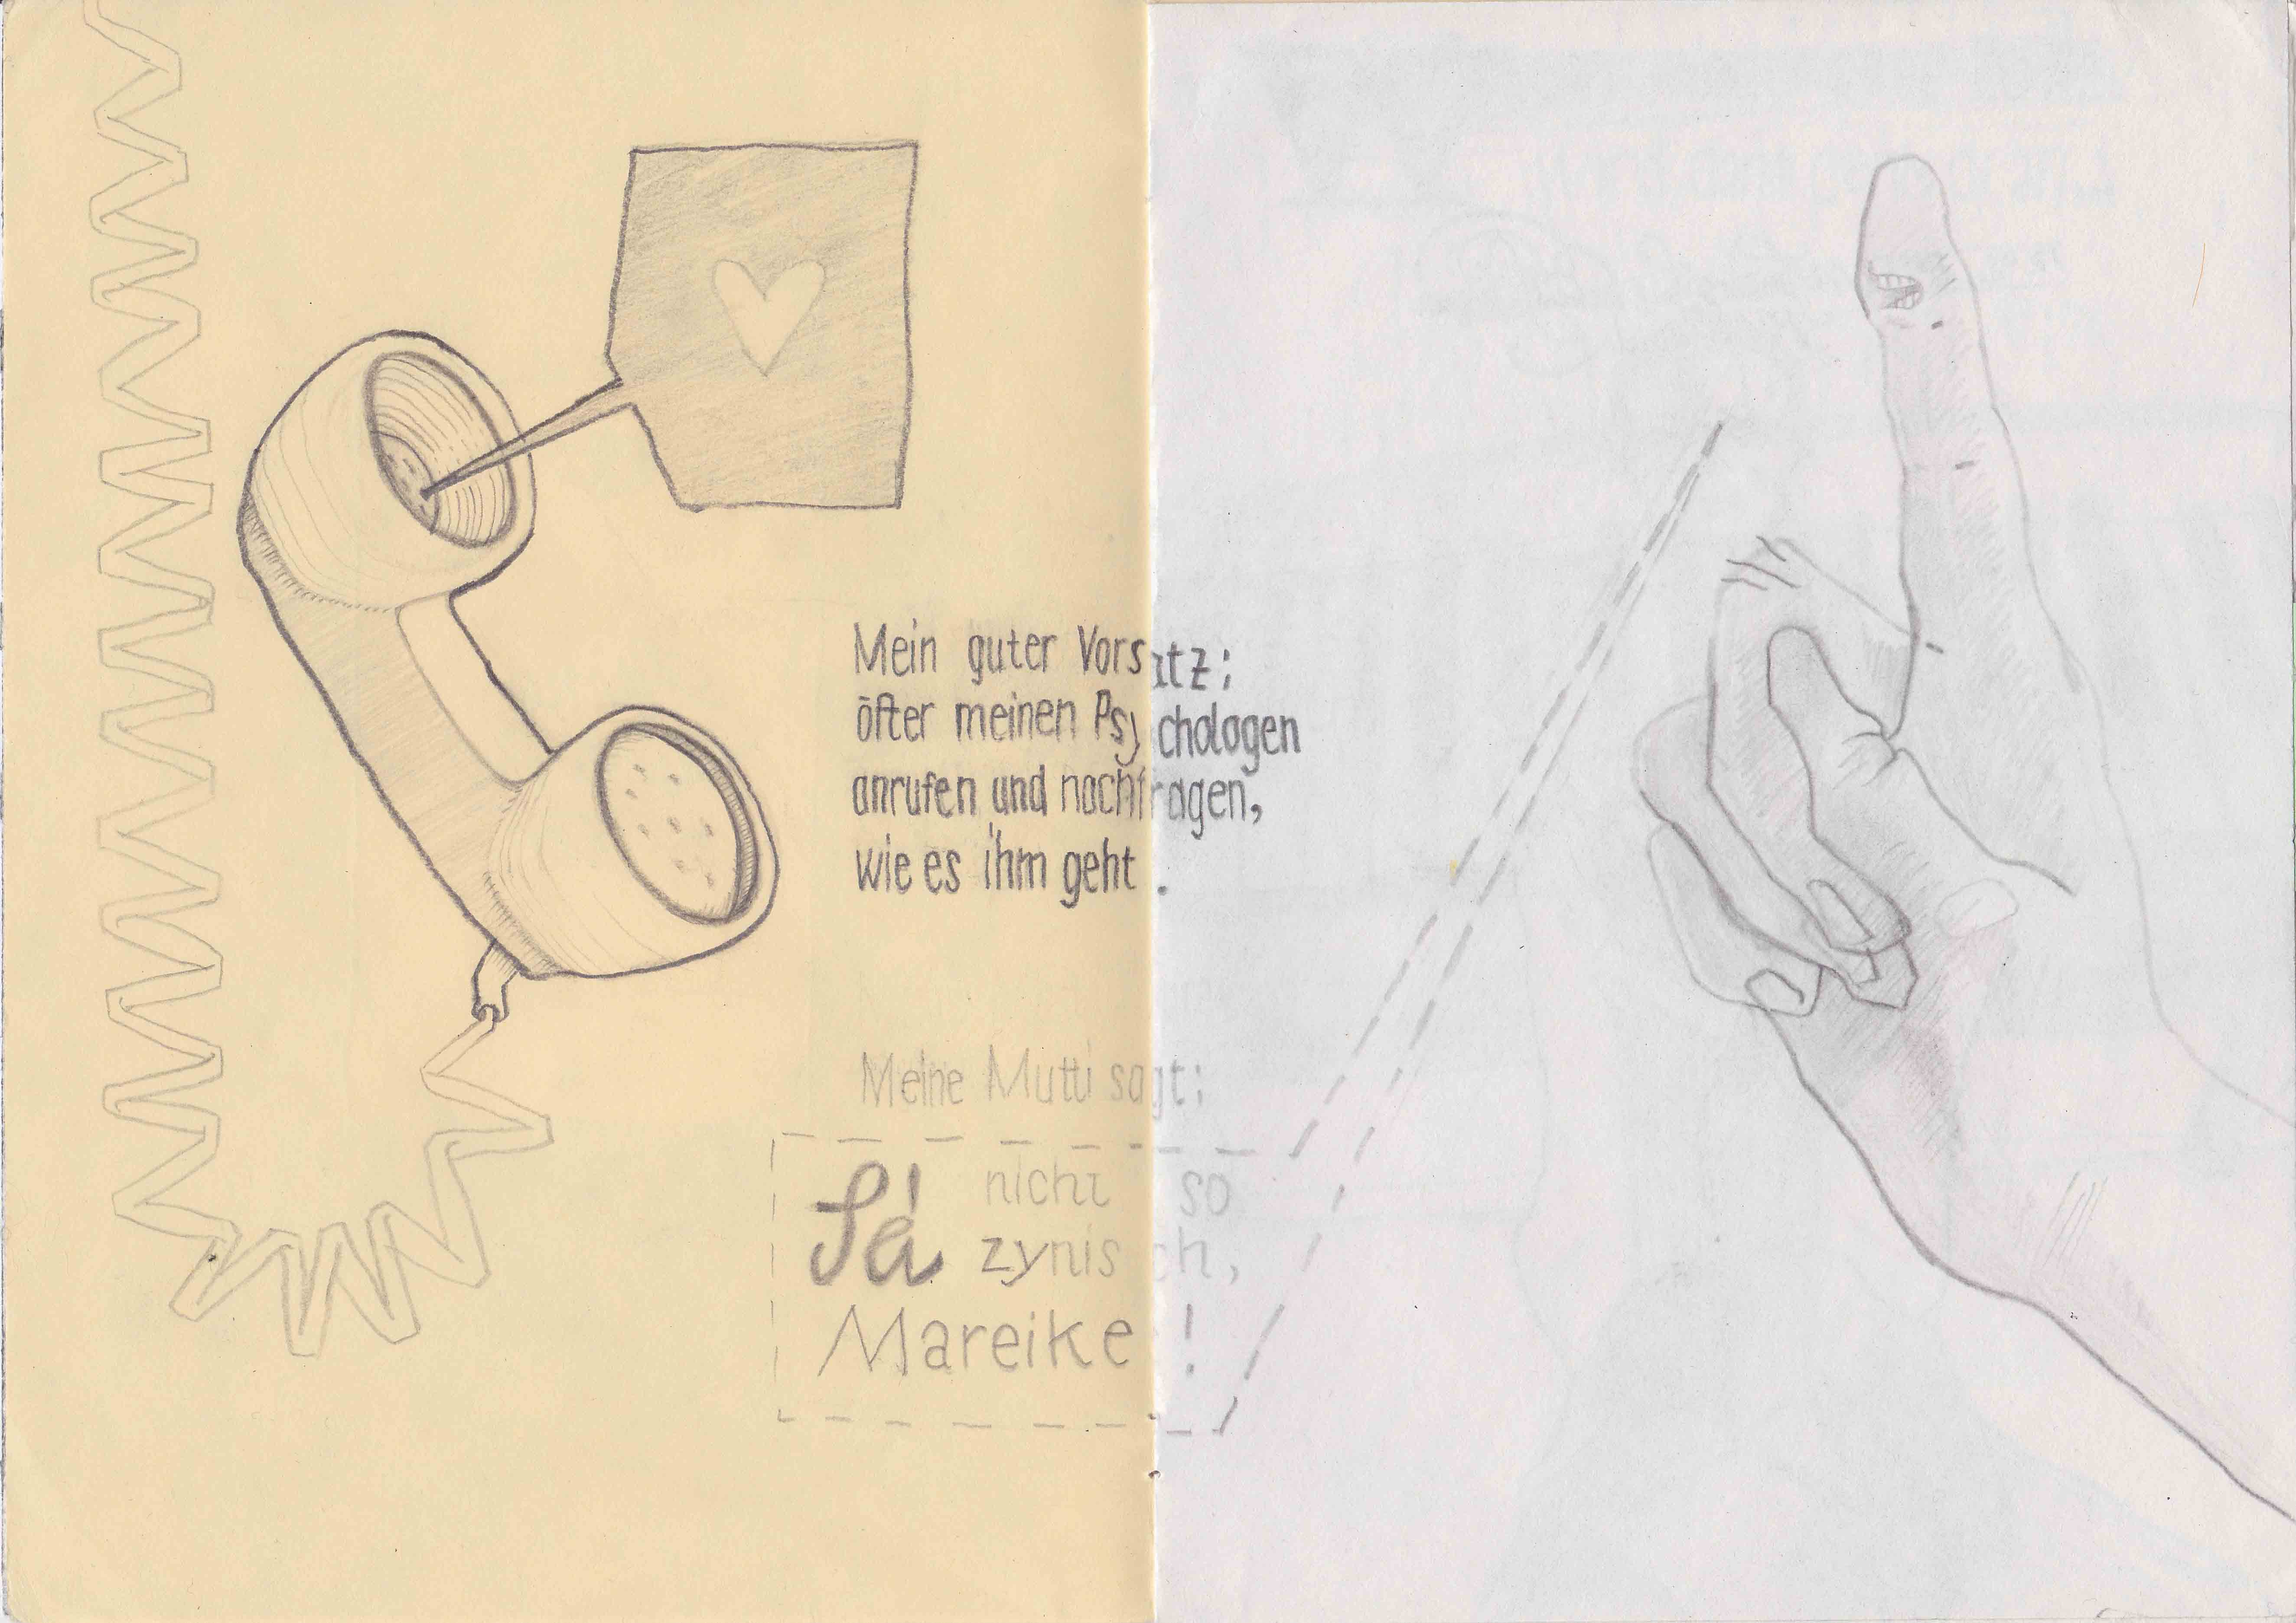 Mein guter Vorsatz:
öfter meinen Psychologen
anrufen und nachfragen,
wie es ihm geht.
Meine Mutti sagt:
Sei nicht so
zynisch,
Mareike!